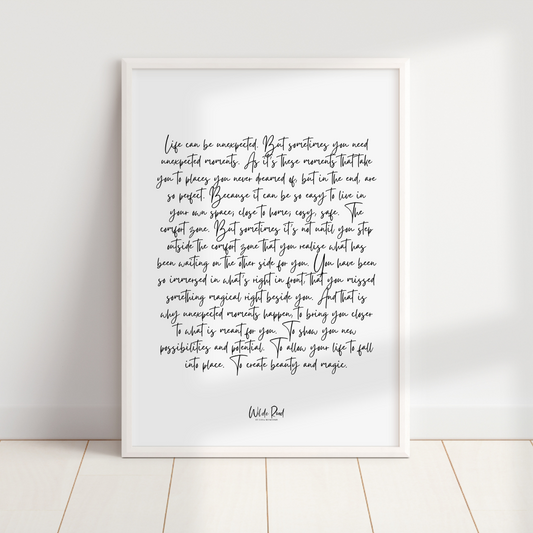 Life can be unexpected. But sometimes you need
unexpected moments. As it's these moments that take
you to places you never dreamed of, but in the end, are
so perfect. Because it can be so easy to live in
your own space; close to home; cosy, safe. The
comfort zone. But sometimes it's not until you step
outside the comfort zone that you realise what has
been waiting on the other side for you. You have been
so immersed in what's right in front, that you missed
something magical right beside you. And that is
why unexpected moments happen, to bring you closer
to what is meant for you. To show you new
possibilities and potential. To allow your life to fall
into place. To create beauty and magic.
Wilde Road